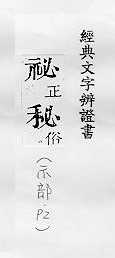 經典文字辨證書
祕正
秘俗
(示部.P2)